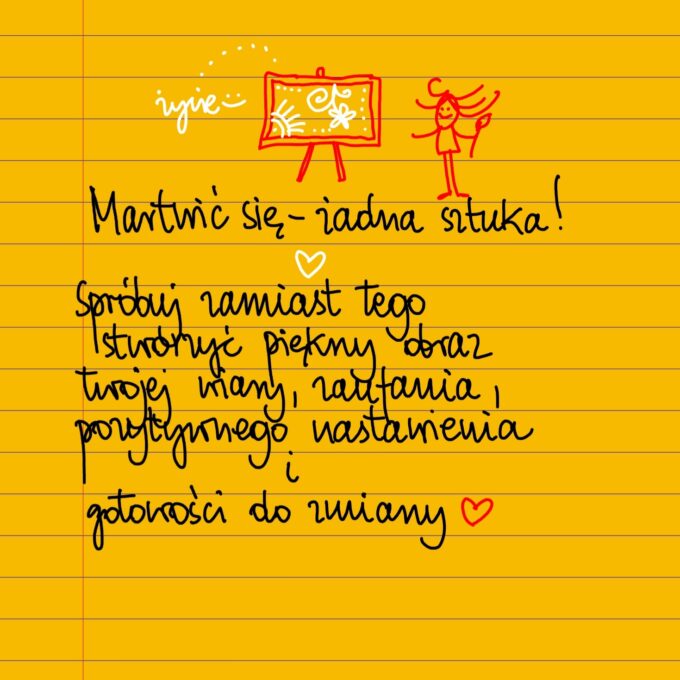 życie
Martwić się – żadna sztuka!
Spróbuj zamiast tego
stworzyć piękny obraz
twojej wiary, zaufania,
pozytywnego nastawienia
i
gotowości do zmiany